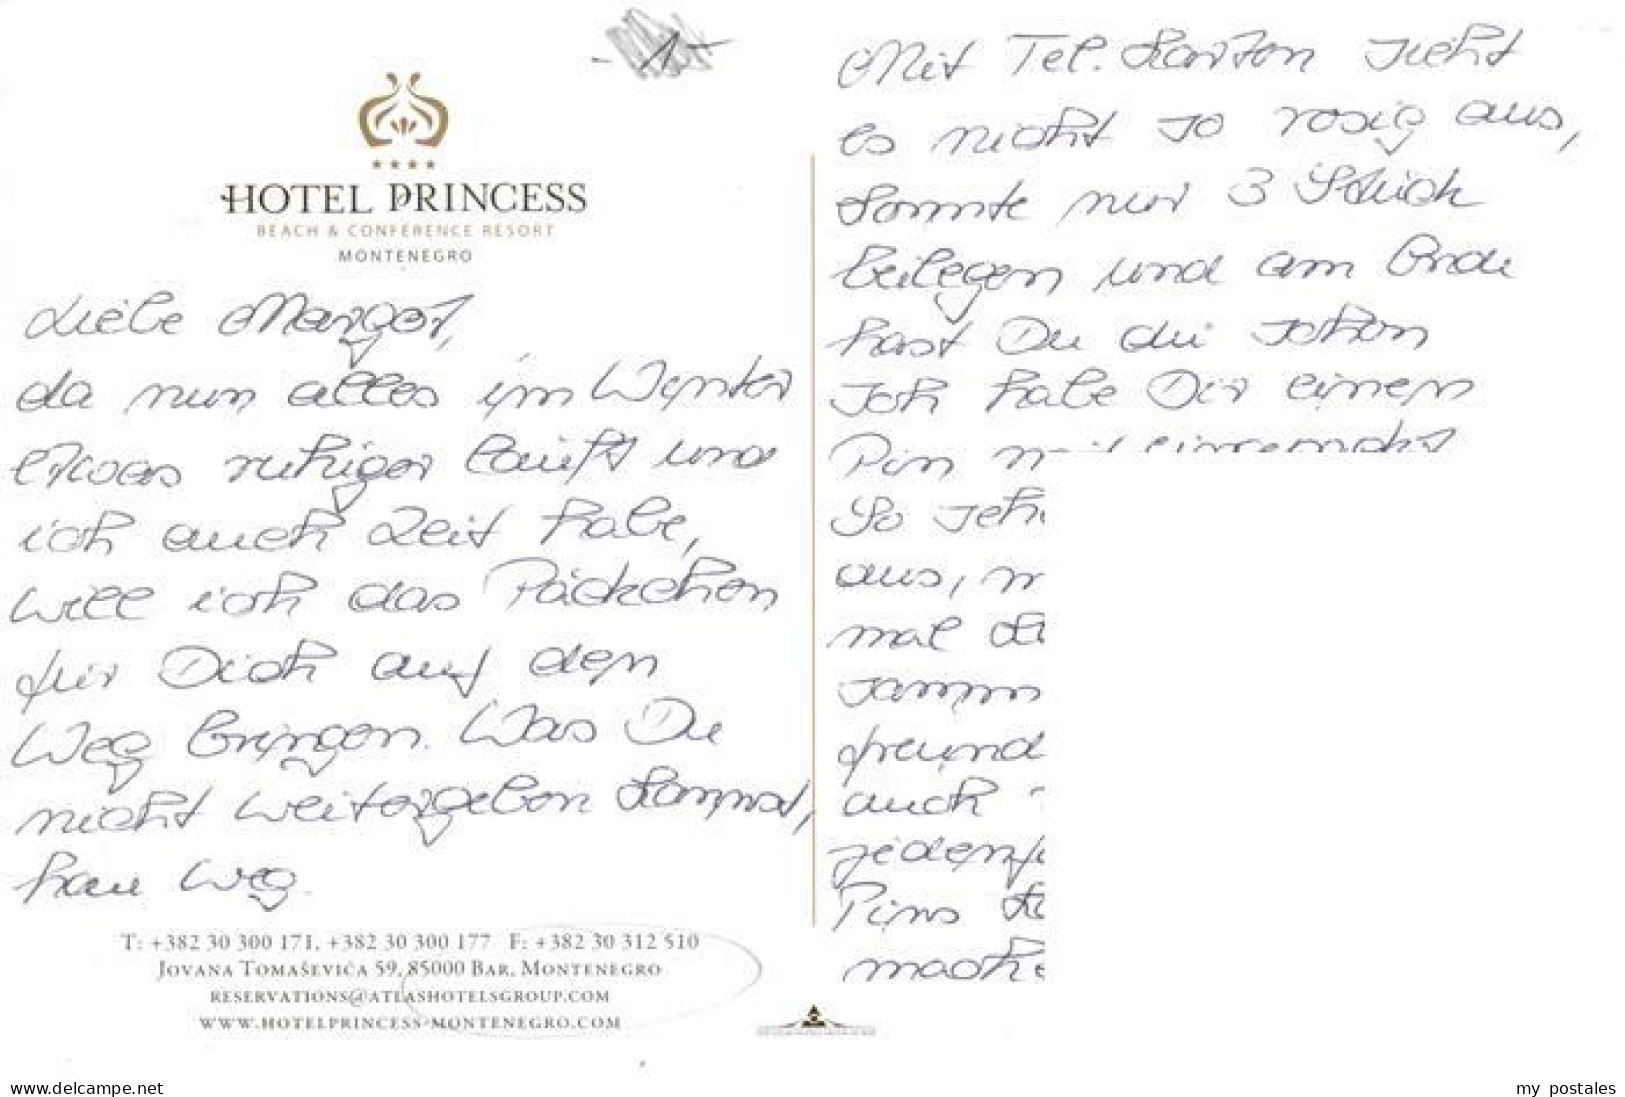 - 1 -
HOTEL PRINCESS
BEACH & CONFERENCE RESORT
MONTENEGRO
Liebe Margot,
da nun alles im Winter
etwas ruhiger läuft und
ich auch Zeit habe,
will ich das Päckchen
für Dich auf den
Weg bringen. Was Du
nicht weitergeben kannst,
hau weg.
T: +382 30 300 171, +382 30 300 177 F: +382 30 312 510
JOVANA TOMAŠEVIĆA 59, 85000 BAR, MONTENEGRO
RESERVATIONS@ATLASHOTELSGROUP.COM
WWW.HOTELPRINCESS-MONTENEGRO.COM
Mit Tel. Karten sieht
es nicht so rosig aus,
konnte nur 3 Stück
beilegen und am Ende
hast Du die schon
Ich habe Dir einen
Pin
So
aus,
mal
freund
auch
Pins
www.delcampe.net
my postales